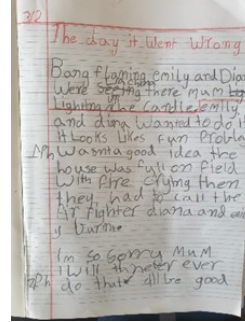 3/2
The day it Went Wrong
Bang flaming emily and Dian
Were seeing there mum
Lighting the Candle. emily
and dina Wanted to do it
it Looks Likes fun Proble
NPh Wasnta good idea the
house was full on field
With fire crying then
they had to call the
fir fighter diana and em
y burne
Im so Sorry MuM
I Will never ever
do that ill be good